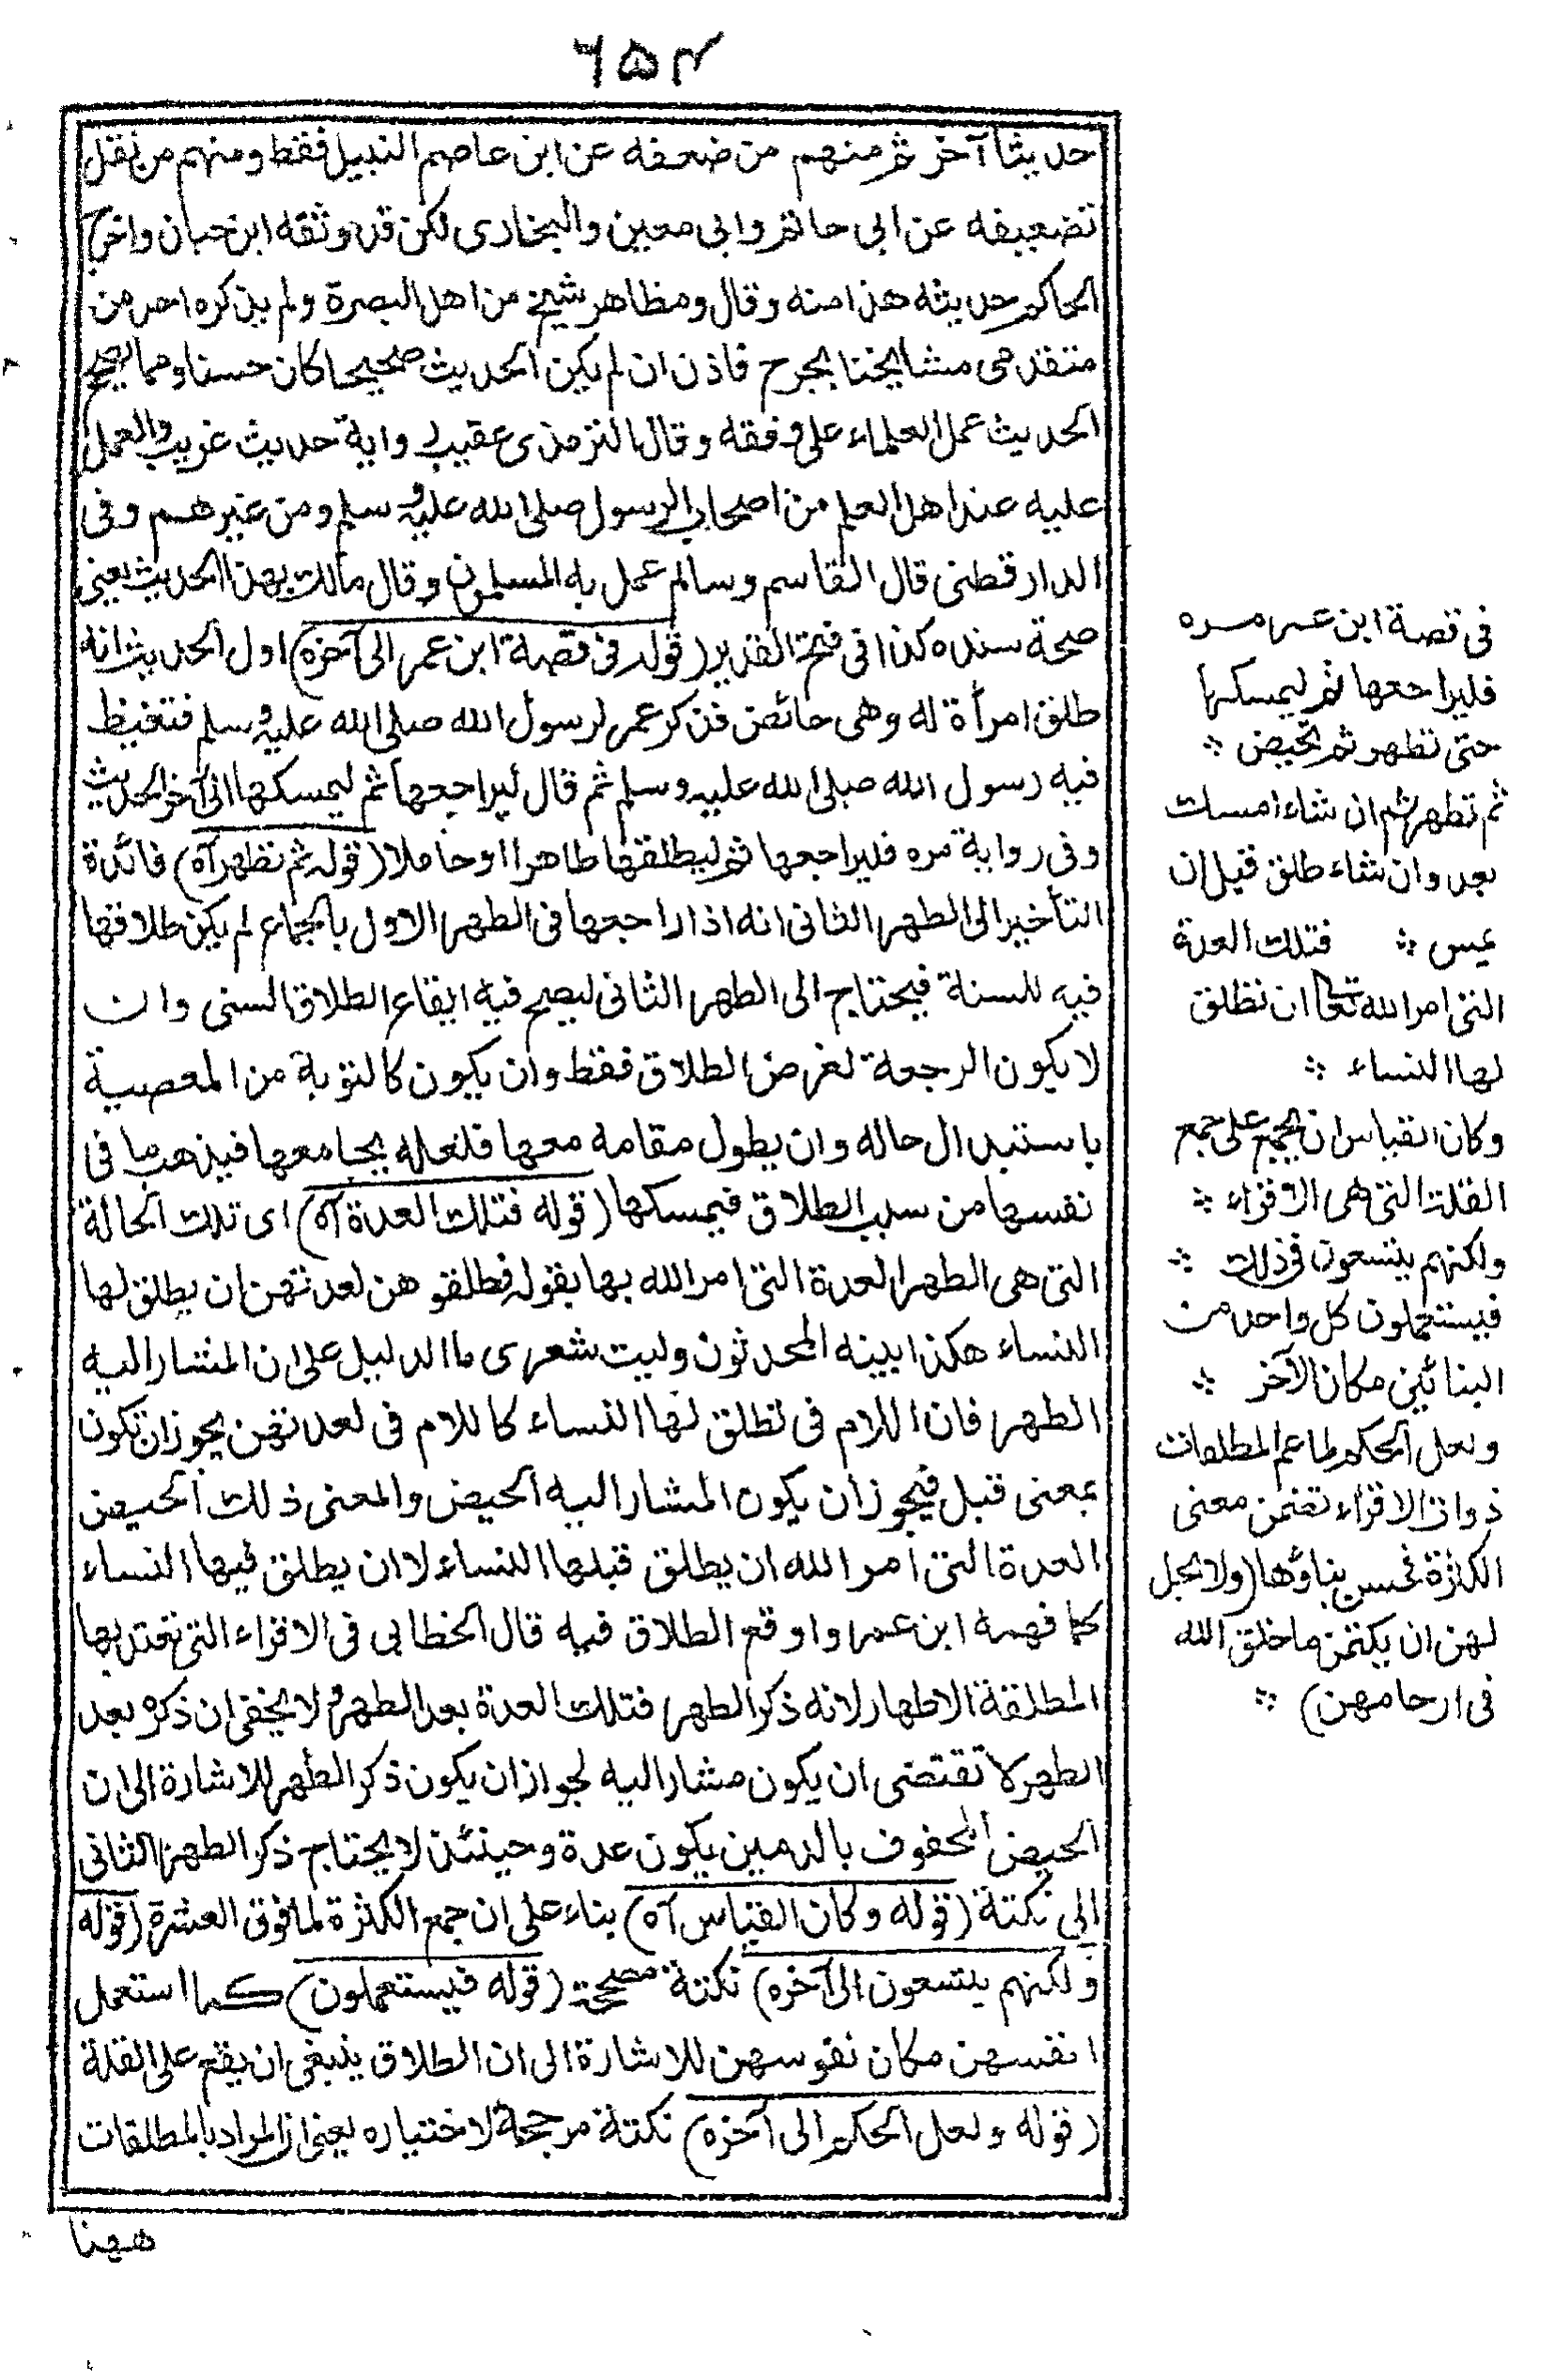 ۶۵۴
حديثا آخر ثم منهم من ضعفه عن ابن عاصم النبيل فقط ومنهم من نقل
تضعيفه عن ابى حاتم وابى معين والبخارى لكن قد وثقه ابن حبان واخرج
الحاكم حديثه هذا منه وقال ومظاهر شيخ من اهل البصرة ولم يذكره احد من
متقدمى مشايخنا بجرح فاذن ان لم يكن الحديث صحيحا كان حسنا ومما يصحح
الحديث عمل العلماء على وفقه وقال الترمذى عقيب رواية حديث غريب والعمل
عليه عند اهل العلم من اصحاب الرسول صلى الله عليه وسلم ومن غيرهم وفى
الدارقطنى قال القاسم وسالم عمل به المسلمون وقال مالك بهذا الحديث يعنى
صحة سنده كذا فى فتح القدير (قوله فى قصة ابن عمر الى آخره) اول الحديث انه
طلق امرأة له وهى حائض فذكر عمر لرسول الله صلى الله عليه وسلم فتغيظ
فيه رسول الله صلى الله عليه وسلم ثم قال ليراجعها ثم ليمسكها الى آخر الحديث
وفى رواية مره فليراجعها ثم ليطلقها طاهرا او حاملا (قوله ثم تطهر آه) فائدة
التأخير الى الطهر الثانى انه اذا راجعها فى الطهر الاول بالجماع لم يكن طلاقها
فيه للسنة فيحتاج الى الطهر الثانى ليصح فيه ايقاع الطلاق السنى وان
لا يكون الرجعة لغرض الطلاق فقط وان يكون كالتوبة من المعصية
باستبدال حاله وان يطول مقامه معها فلعله يجامعها فيذهب ما فى
نفسها من سبب الطلاق فيمسكها (قوله فتلك العدة آه) اى تلك الحالة
التى هى الطهر العدة التى امر الله بها بقوله فطلقوهن لعدتهن ان يطلق لها
النساء هكذا يبينه المحدثون وليت شعرى ما الدليل على ان المشار اليه
الطهر فان اللام فى تطلق لها النساء كاللام فى لعدتهن يجوز ان تكون
بمعنى قبل فيجوز ان يكون المشار اليه الحيض والمعنى ذلك الحيض
العدة التى امر الله ان يطلق قبلها النساء لا ان يطلق فيها النساء
كما فهمه ابن عمر واوقع الطلاق فيه قال الخطابى فى الاقراء التى تعتد بها
المطلقة الاطهار لانه ذكر الطهر فتلك العدة بعد الطهر ولا يخفى ان ذكره بعد
الطهر لا تقتضى ان يكون مشارا اليه لجواز ان يكون ذكر الطهر للاشارة الى ان
الحيض المحفوف بالدمين يكون عدة وحينئذ لا يحتاج ذكر الطهر الثانى
الى نكتة (قوله وكان القياس آه) بناء على ان جمع الكثرة لما فوق العشرة (قوله
ولكنهم يتسعون الى آخره) نكتة مصححة (قوله فيستعملون) كما استعمل
انفسهن مكان نفوسهن للاشارة الى ان الطلاق ينبغى ان يقع على القلة
(قوله ولعل الحكم الى آخره) نكتة مرجحة لاختياره يعنى ان المراد بالمطلقات
ههنا
فى قصة ابن عمر مره
فليراجعها ثم ليمسكها
حتى تطهر ثم تحيض ⁘
ثم تطهر ثم ان شاء امسك
بعد وان شاء طلق قبل ان
يمس ⁘ فتلك العدة
التى امر الله تعا ان تطلق
لها النساء ⁘
وكان القياس ان يجمع على جمع
القلة التى هى الاقراء ⁘
ولكنهم يتسعون فى ذلك ⁘
فيستعملون كل واحد من
البنائين مكان الآخر ⁘
ولعل الحكم لما عم المطلقات
ذوات الاقراء تضمن معنى
الكثرة فحسن بناؤها (ولا يحل
لهن ان يكتمن ما خلق الله
فى ارحامهن) ⁘